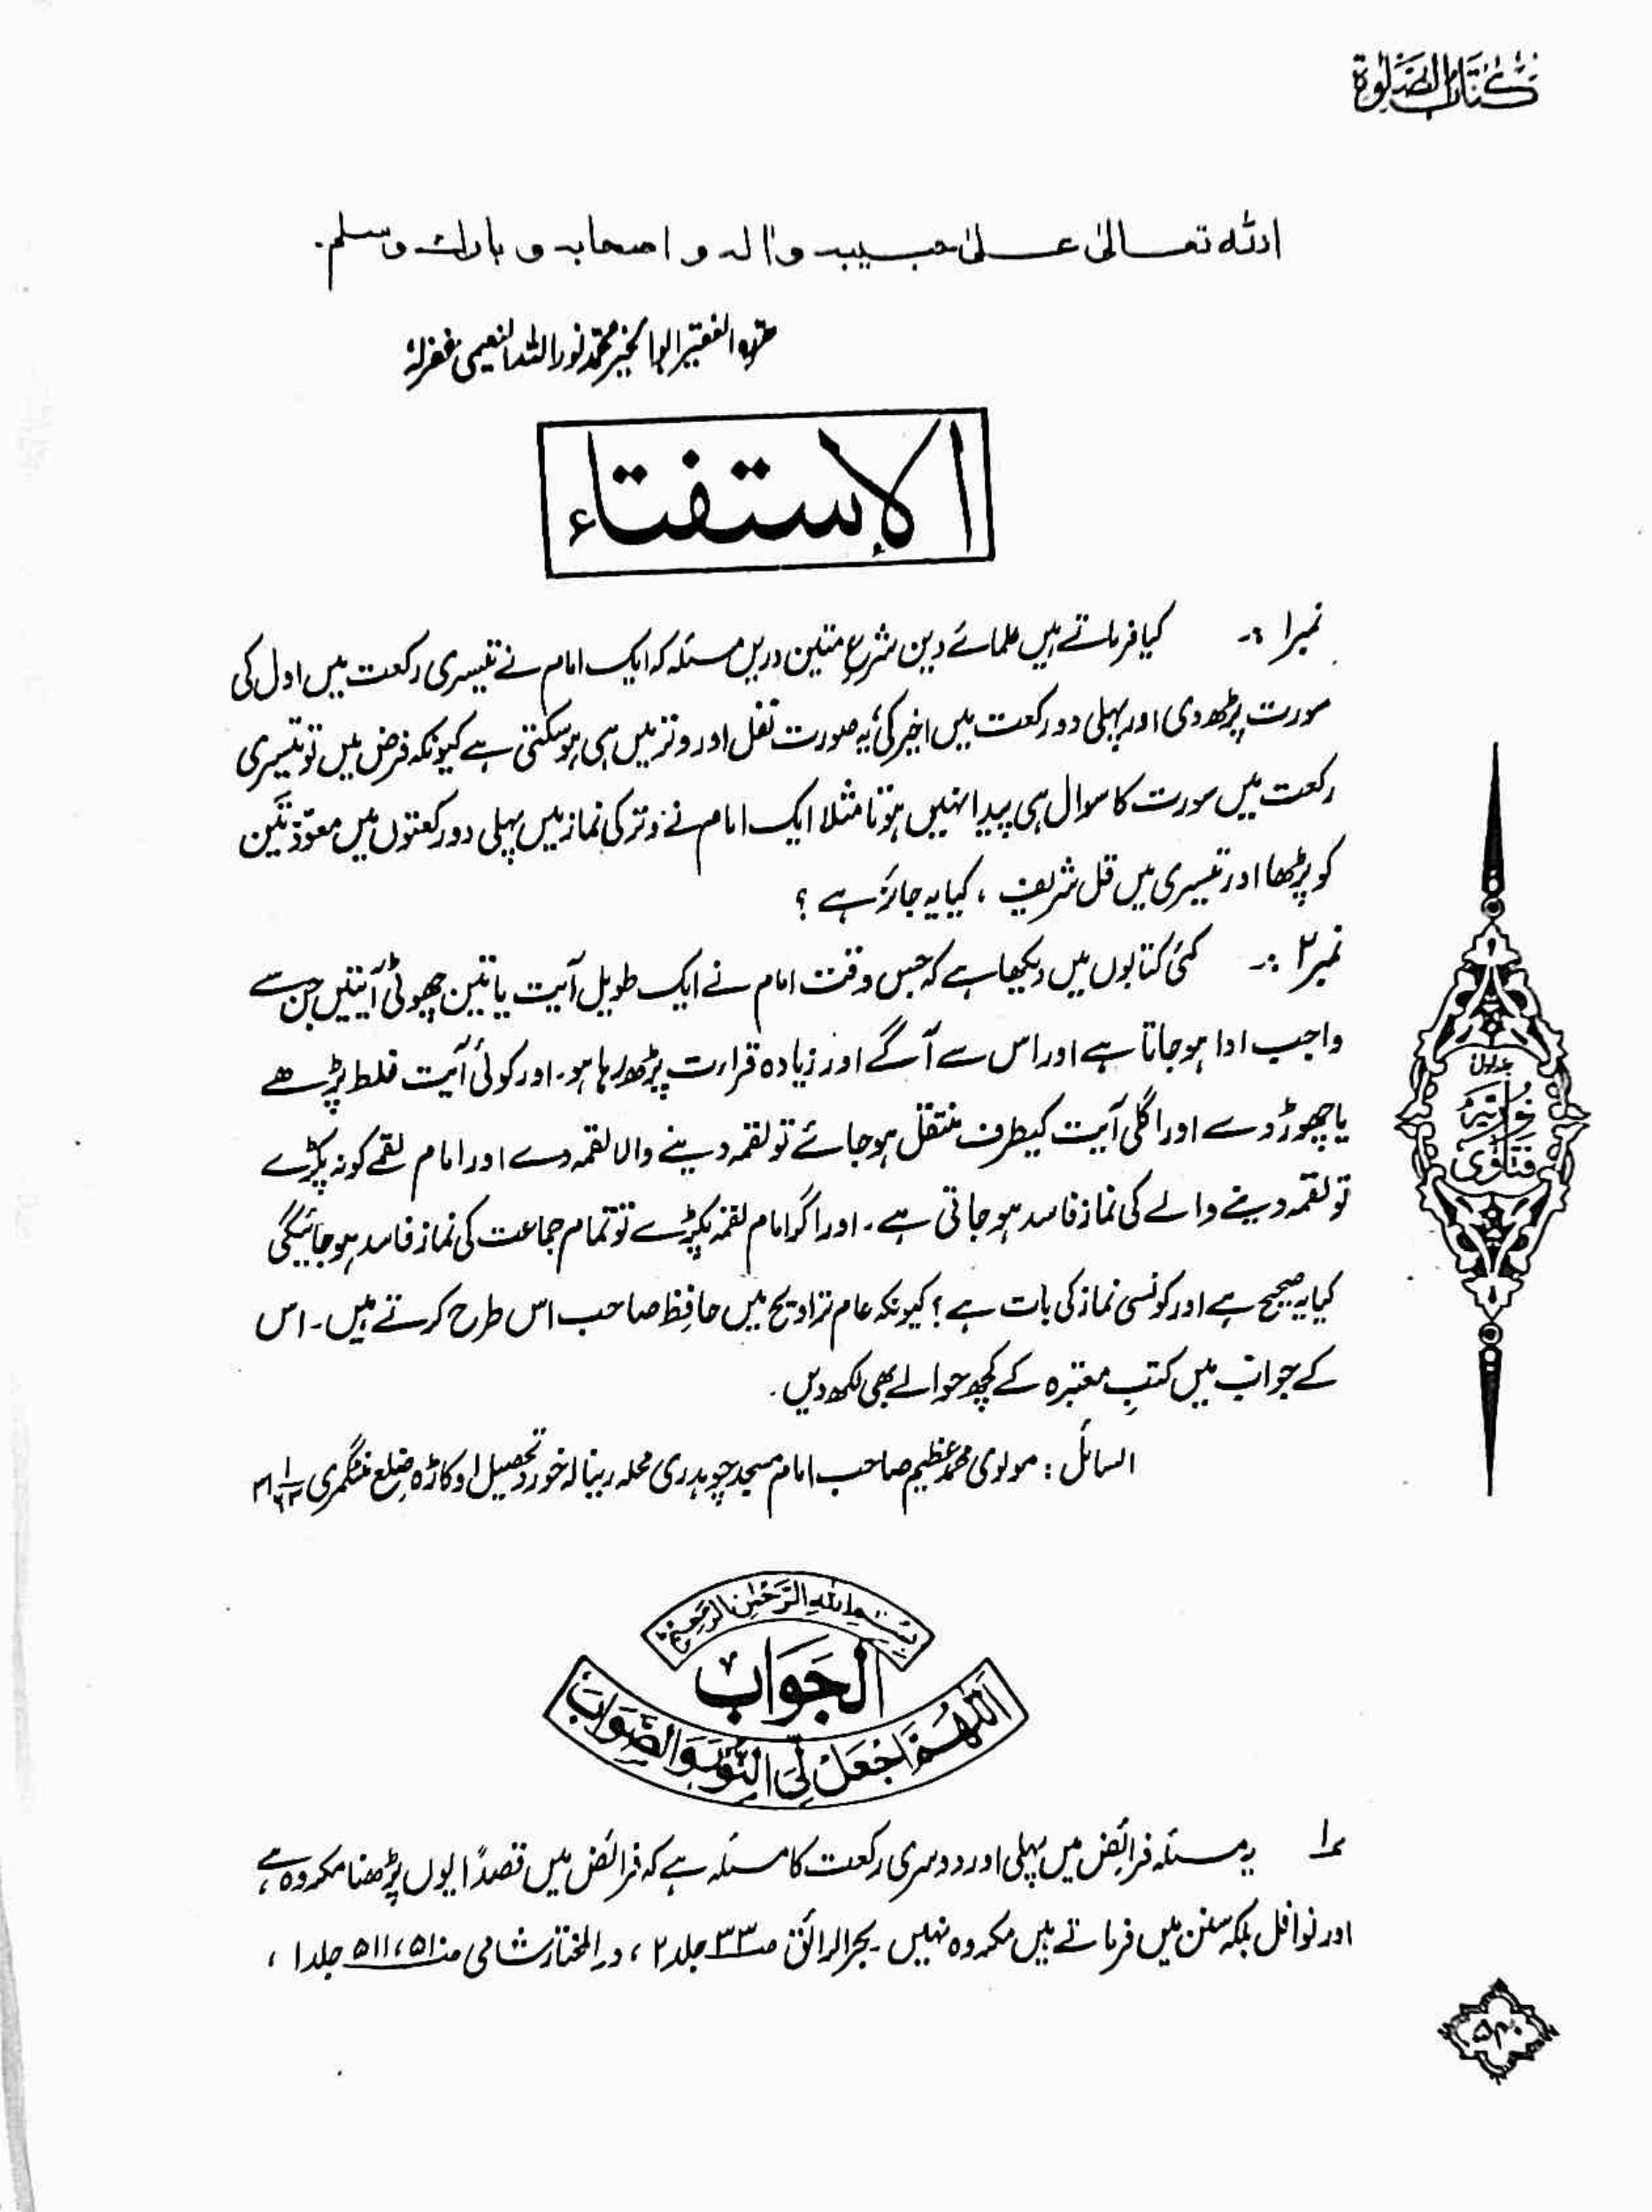 كتاب الصلوة
الله تعالیٰ علیٰ حبیبه واٰله و اصحابه و بارك وسلم.
حرره الفقیر ابوالخیر محمد نور اللہ النعیمی غفرلہٗ
الاستفتاء
نمبر۱ :۔ کیا فرماتے ہیں علمائے دین شرع متین دریں مسئلہ کہ ایک امام نے تیسری رکعت میں اول کی
سورت پڑھ دی اور پہلی دو رکعت میں اخیر کی، یہ صورت نفل اور وتر میں ہی ہو سکتی ہے کیونکہ فرض میں تو تیسری
رکعت میں سورت کا سوال ہی پیدا نہیں ہوتا مثلا ایک امام نے وتر کی نماز میں پہلی دو رکعتوں میں معوّذتَین
کو پڑھا اور تیسری میں قل شریف ، کیا یہ جائز ہے ؟
نمبر۲ :۔ کئی کتابوں میں دیکھا ہے کہ جس وقت امام نے ایک طویل آیت یا تین چھوٹی آیتیں جن سے
واجب ادا ہو جاتا ہے اور اس سے آگے اور زیادہ قراءت پڑھ رہا ہو۔ اور کوئی آیت غلط پڑھے
یا چھوڑ دے اور اگلی آیت کیطرف منتقل ہو جائے تو لقمہ دینے والا لقمہ دے اور امام لقمے کو نہ پکڑے
تو لقمہ دینے والے کی نماز فاسد ہو جاتی ہے ۔ اور اگر امام لقمہ پکڑے تو تمام جماعت کی نماز فاسد ہو جائیگی
کیا یہ صحیح ہے اور کونسی نماز کی بات ہے ؟ کیونکہ عام تراویح میں حافظ صاحب اس طرح کرتے ہیں۔ اس
کے جواب میں کتبِ معتبرہ کے کچھ حوالے بھی لکھ دیں ۔
السائل : مولوی محمد عظیم صاحب امام مسجد چوہدری محلہ رینالہ خورد تحصیل اوکاڑہ ضلع منٹگمری
جلد اول
فتاوٰی نوریہ
بسم الله الرحمن الرحيم
الجواب
اللهم اجعل لی النور والصواب
۱ یہ مسئلہ فرائض میں پہلی اور دوسری رکعت کا مسئلہ ہے کہ فرائض میں قصدًا یوں پڑھنا مکروہ ہے،
اور نوافل بلکہ سنن میں فرماتے ہیں مکروہ نہیں ۔ بحرالرائق ص۳۳ جلد ۲ ، در المختار شامی ص۵۱۰، ۵۱۱ جلد ۱ ،
۵۲۰